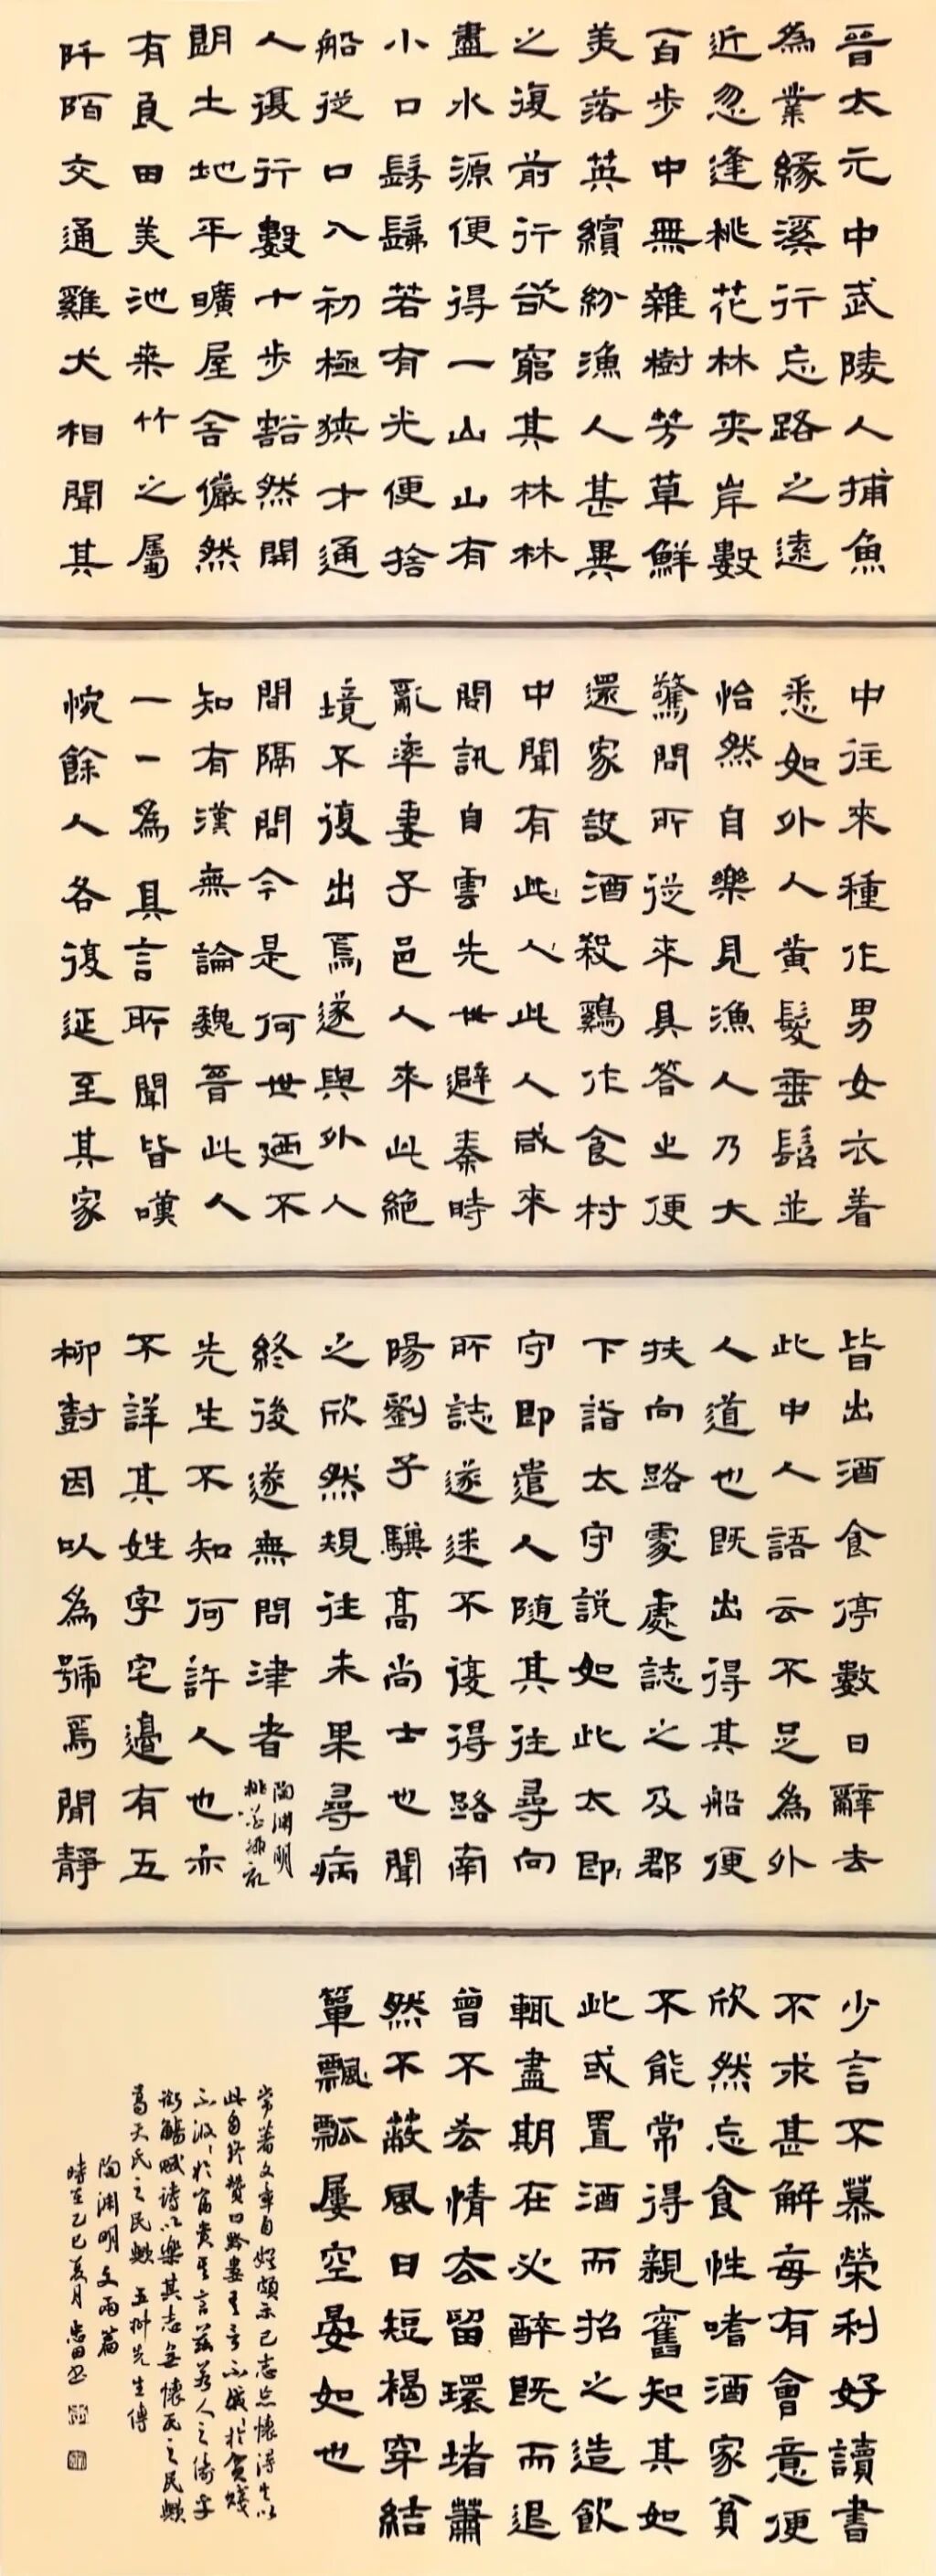 晉太元中武陵人捕魚
為業緣溪行忘路之遠
近忽逢桃花林夾岸數
百步中無雜樹芳草鮮
美落英繽紛漁人甚異
之復前行欲窮其林林
盡水源便得一山山有
小口髣髴若有光便捨
船從口入初極狹才通
人復行數十步豁然開
朗土地平曠屋舍儼然
有良田美池桑竹之屬
阡陌交通雞犬相聞其
中往來種作男女衣着
悉如外人黃髮垂髫並
怡然自樂見漁人乃大
驚問所從來具答之便
還家設酒殺鷄作食村
中聞有此人此人咸來
問訊自雲先世避秦時
亂率妻子邑人來此絕
境不復出焉遂與外人
間隔問今是何世廼不
知有漢無論魏晉此人
一一為具言所聞皆嘆
惋餘人各復延至其家
皆出酒食停數日辭去
此中人語云不足為外
人道也既出得其船便
扶向路處處誌之及郡
下詣太守說如此太即
守即遣人隨其往尋向
所誌遂迷不復得路南
陽劉子驥高尚士也聞
之欣然規往未果尋病
終後遂無問津者
陶淵明
桃花源記
先生不知何許人也亦
不詳其姓字宅邊有五
柳尌因以為號焉閒靜
少言不慕榮利好讀書
不求甚解每有會意便
欣然忘食性嗜酒家貧
不能常得親舊知其如
此或置酒而招之造飲
輒盡期在必醉既而退
曾不吝情去留環堵蕭
然不蔽風日短褐穿結
簞飄瓢屢空晏如也
常著文章自娛頗示己志忘懷得失以
此自終贊曰黔婁有言不戚戚於貧賤
不汲汲於富貴其言茲若人之儔乎
銜觴賦詩以樂其志無懷氏之民歟
葛天氏之民歟 五柳先生傳
陶淵明文兩篇
時在乙巳夏月